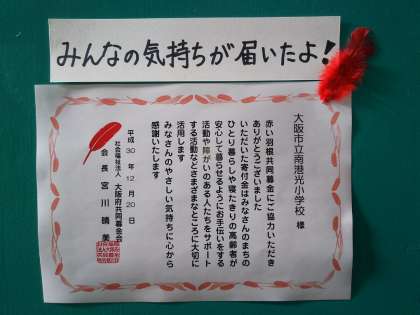 みんなの気持ちが届いたよ!
大阪市立南港光小学校 様
赤い羽根共同募金にご協力いただき
ありがとうございました
いただいた寄付金はみなさんのまちの
ひとり暮らしや寝たきりの高齢者が
安心して暮らせるようにお手伝いをする
活動や障がいのある人たちをサポート
する活動などさまざまなところに大切に
活用します
みなさんのやさしい気持ちに心から
感謝いたします
平成30年12月20日
社会福祉法人 大阪府共同募金会
会長 宮川晴美